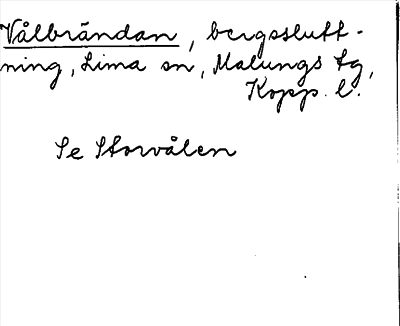 Vålbrändan, bergsslutt-
ning, Lima sn, Malungs tg,
Kopp. l.
Se Storvålen